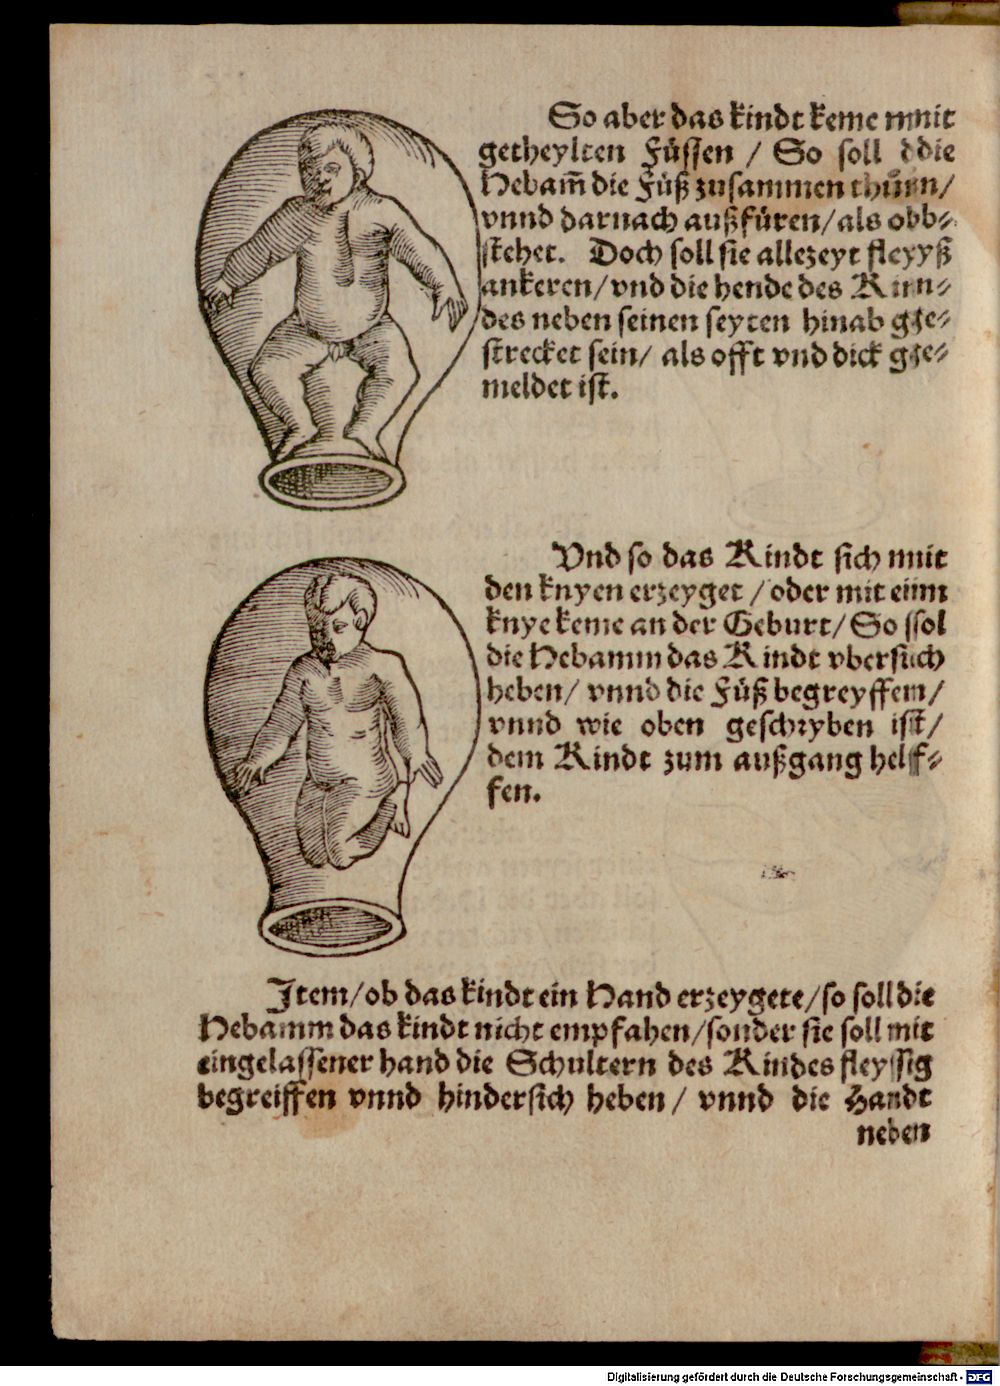 So aber das kindt keme mnit
getheylten Fuͤssen / So soll ddie
Hebam̃ die Fuͤß zusammen thuͤnn/
vnnd darnach außfuͤren/als obb⸗
stehet. Doch soll sie allezeyt fleyyß
ankeren/vnd die hende des Kinn⸗
des neben seinen seyten hinab gge⸗
strecket sein/ als offt vnd dick gge⸗
meldet ist.
Vnd so das Kindt sich mit
den knyen erzeyget /oder mit einn
knye keme an der Geburt/So ssol
die Hebamm das Kindt vbersiich
heben/ vnnd die Fuͤß begreyffem/
vnnd wie oben geschryben isst/
dem Kindt zum außgang helff⸗
fen.
Item/ob das kindt ein Hand erzeygete/so soll die
Hebamm das kindt nicht empfahen/sonder sie soll mit
eingelassener hand die Schultern des Kindes fleyssig
begreiffen vnnd hindersich heben/ vnnd die Handt
neben
Digitalisierung gefördert durch die Deutsche Forschungsgemeinschaft - DFG